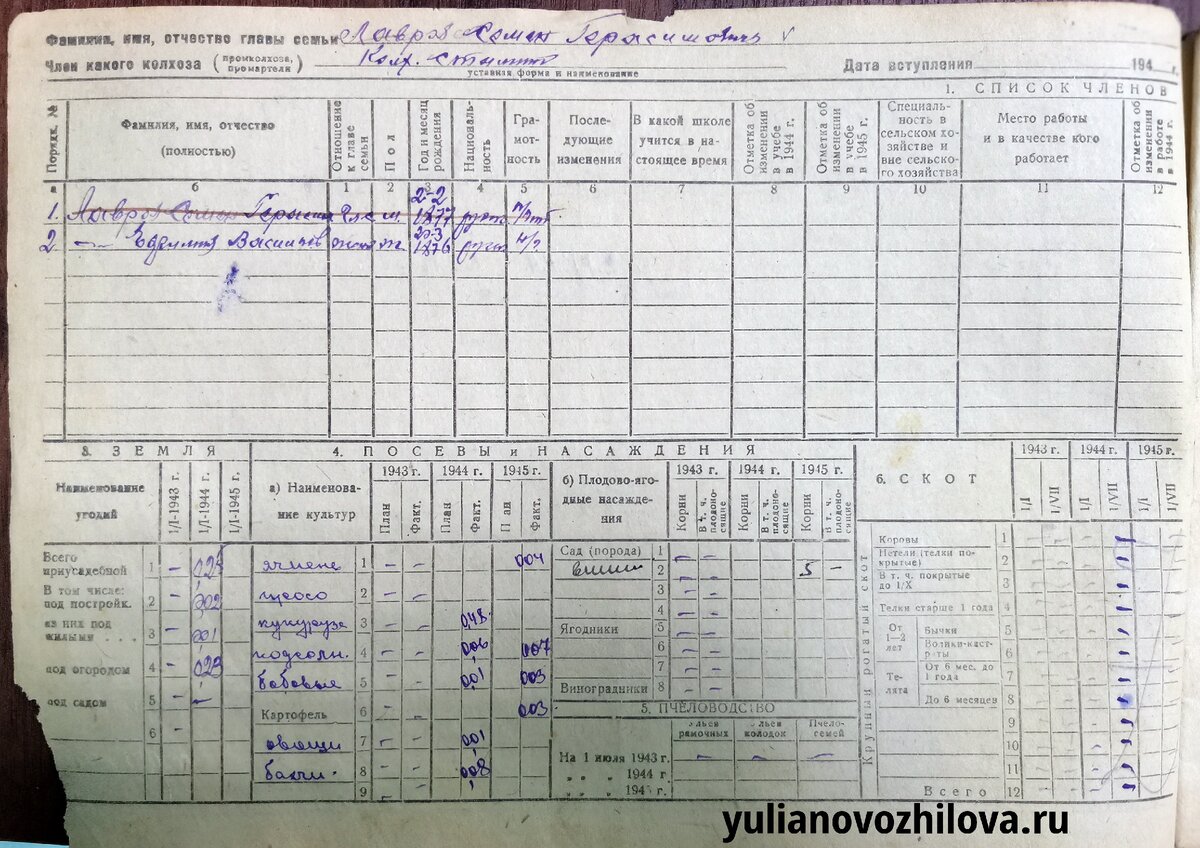 Фамилия, имя, отчество главы семьи Лавров Семен Герасимович
Член какого колхоза (промколхоза, промартели) Колх. Сталина
уставная форма и наименование
Дата вступления 194 г.
1. СПИСОК ЧЛЕНОВ
Порядк. №
Фамилия, имя, отчество (полностью)
Отношение к главе семьи
Пол
Год и месяц рождения
Националь-ность
Гра-мот-ность
После-дующие изменения
В какой школе учится в на-стоящее время
Отметка об изменении в учебе в 1944 г.
Отметка об изменении в учебе в 1945 г.
Специаль-ность в сельском хо-зяйстве и вне сельско-го хозяйства
Место работы и в качестве кого работает
Отметка об изменении в работе в 1944 г.
а б 1 2 3 4 5 6 7 8 9 10 11 12
1. Лавров Семен Герасим 2-2 1877
2 —〃— Васильев 20-3 1876 н/г
3. ЗЕМЛЯ
Наименование угодий
1/I-1943 г. 1/I-1944 г. 1/I-1945 г.
Всего приусадебной 1 – 025
В том числе: под постройк. 2 – 002
из них под жилыми . . . 3 – 001
под огородом 4 – 023
под садом 5 – –
6 –
4. ПОСЕВЫ и НАСАЖДЕНИЯ
а) Наименова-ние культур
1943 г. 1944 г. 1945 г.
План Факт. План Факт. План Факт.
ячмень 1 – – 004
просо 2 – –
кукуруза 3 – –
подсолн. 4 – – 006 007
бобовые 5 – – 001 003
Картофель 6 – – 003
овощи 7 – – 001
бахчи. 8 – – 008
9 – –
б) Плодово-яго-дные насажде-ния
1943 г. 1944 г. 1945 г.
Корни В т. ч. плодоно-сящие Корни В т. ч. плодоно-сящие Корни В т. ч. плодоно-сящие
Сад (порода) 1 – –
вишни 2 – – 5 –
3 – –
4 – –
Ягодники 5 – –
6 – –
7 – –
Виноградники 8 – –
5. ПЧЕЛОВОДСТВО
Ульев рамочных Ульев колодок Пчело-семей
На 1 июля 1943 г. – – –
„ „ „ 1944 г
„ „ „ 1945 г.
6. СКОТ
1943 г. 1944 г. 1945 г.
1/I 1/VII 1/I 1/VII 1/I 1/VII
Крупный рогатый скот
Коровы 1
Нетели (телки по-крытые) 2
В т. ч. покрытые до 1/X 3
Телки старше 1 года 4
От 1—2 лет
Бычки 5
Волики-каст-раты 6
Те-лята
От 6 мес. до 1 года 7
До 6 месяцев 8
9
10
11
Всего 12
yulianovozhilova.ru